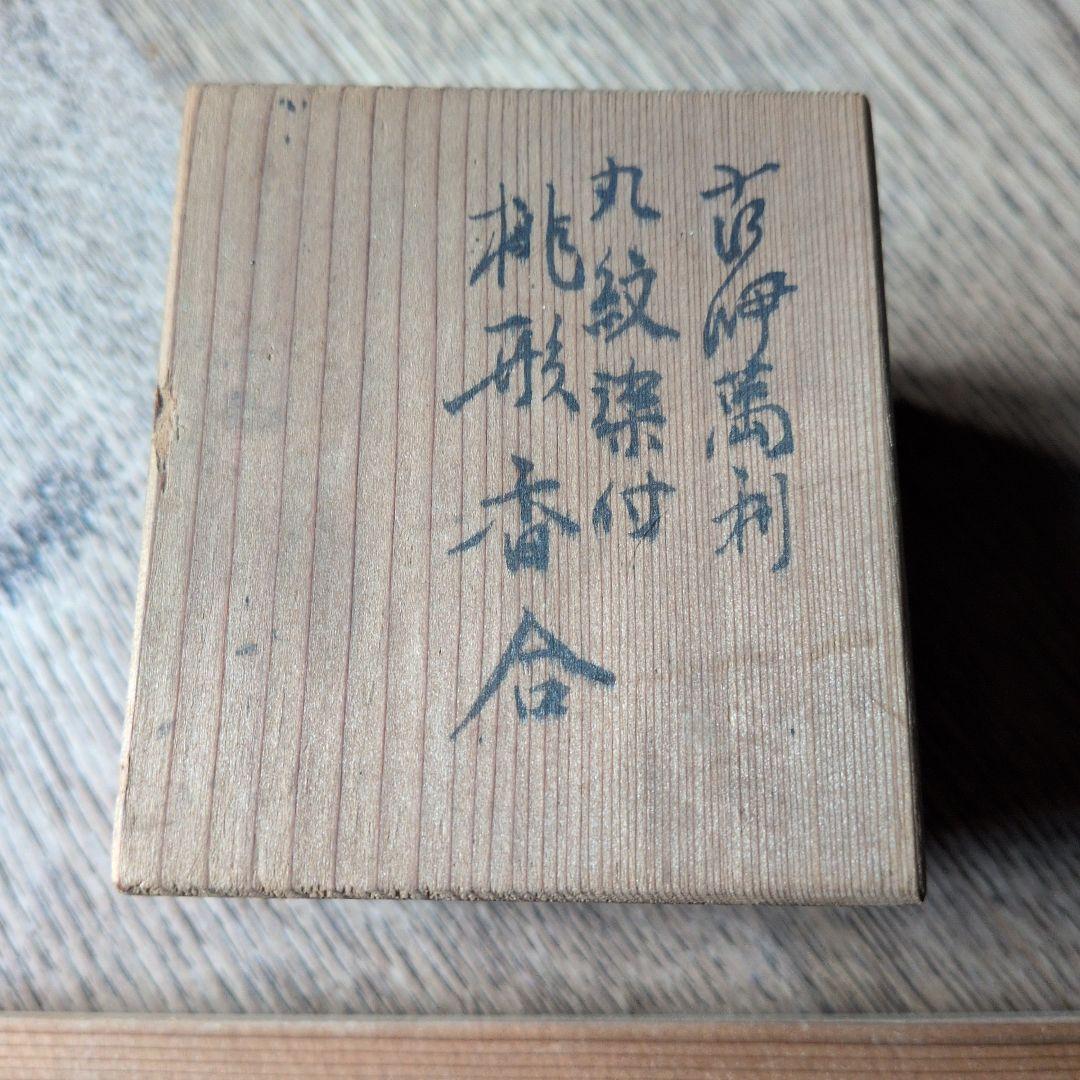 古伊萬利
丸紋染付
桃形香合